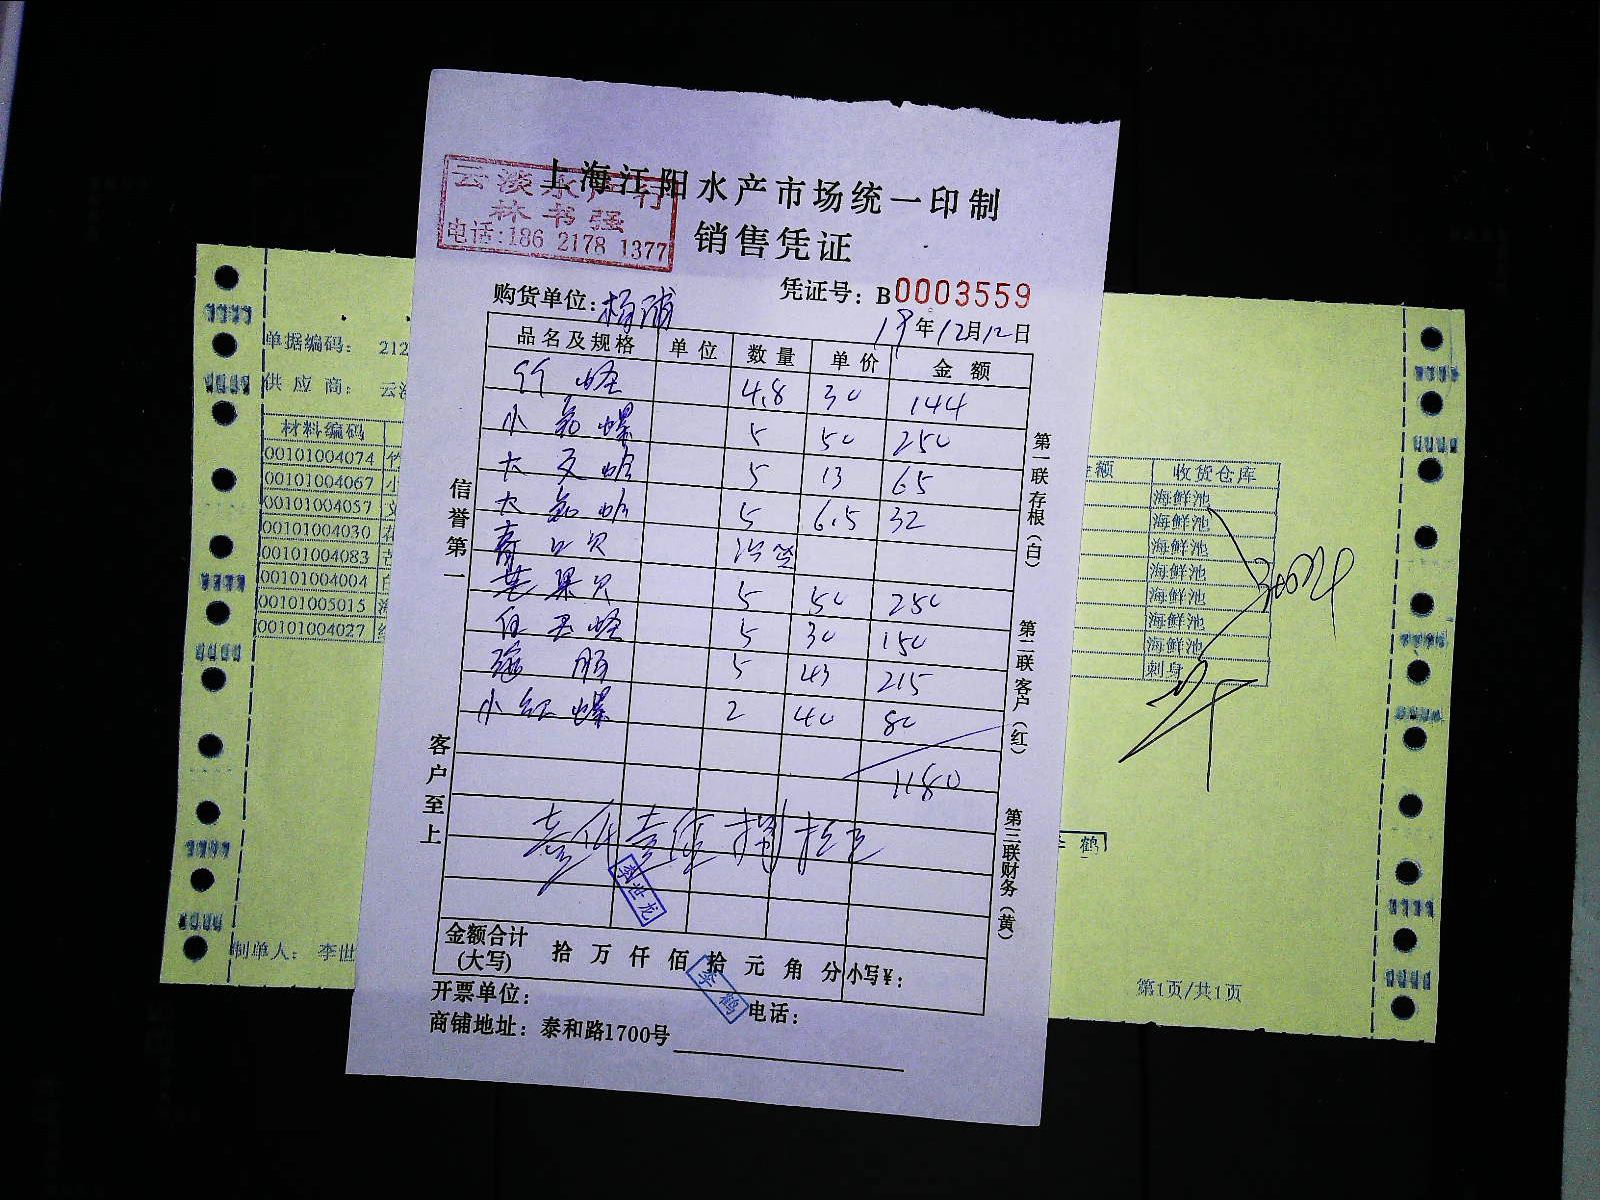 上海江阳水产市场统一印制
云淡水产行
林书强
电话:186 2178 1377
销售凭证
凭证号: B0003559
购货单位:杨浦
19年12月12日
品名及规格 单位 数量 单价 金额
竹蛏 4.8 30 144
小花螺 5 50 250
大文蛤 5 13 65
大花蛤 5 6.5 32
青口贝
苹果贝 5 50 250
白玉蛏 5 30 150
海肠 5 43 215
小红螺 2 40 80
1180
李世龙
金额合计(大写) 拾万仟佰拾元角分 小写¥:
李鹤
开票单位:
电话:
商铺地址: 泰和路1700号
信誉第一
客户至上
第一联存根(白)
第二联客户(红)
第三联财务(黄)
单据编码: 212
供应商: 云淡
材料编码
00101004074 竹
00101004067 小
00101004057 文
00101004030 花
00101004083
00101004004
00101005015 海
00101004027
制单人: 李世
金额 收货仓库
海鲜池
海鲜池
海鲜池
海鲜池
海鲜池
海鲜池
海鲜池
刺身
李鹤
第1页/共1页